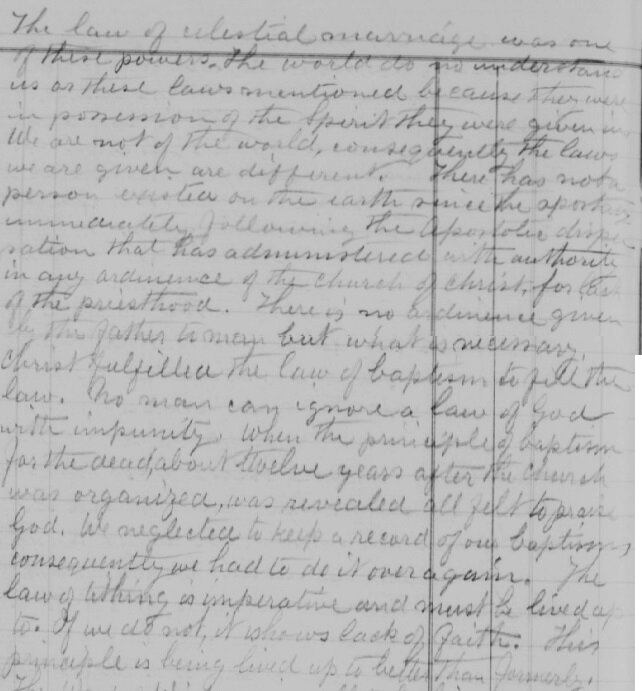 The law of celestial marriage was one
of these powers. The world do no understand
us or these laws mentioned because they were
in possession of the Spirit they were given in.
We are not of the world, consequently the laws
we are given are different. There has not a
person existed on the earth since the apostacy
immediately following the Apostolic dispen
sation that has administered with authorite
in any ordinence of the church of Christ, for lack
of the priesthood. There is no ordinence given
by the father to man but what is necessary.
Christ fulfilled the law of baptism to fill the
law. No man can ignore a law of God
with impunity. When the principle of baptism
for the dead, about twelve years after the church
was organized, was revealed all felt to praise
God. We neglected to keep a record of our baptisms,
consequently we had to do it over again. The
law of tithing is imperative and must be lived up
to. If we do not, it shows lack of faith. This
principle is being lived up to better than formerly.